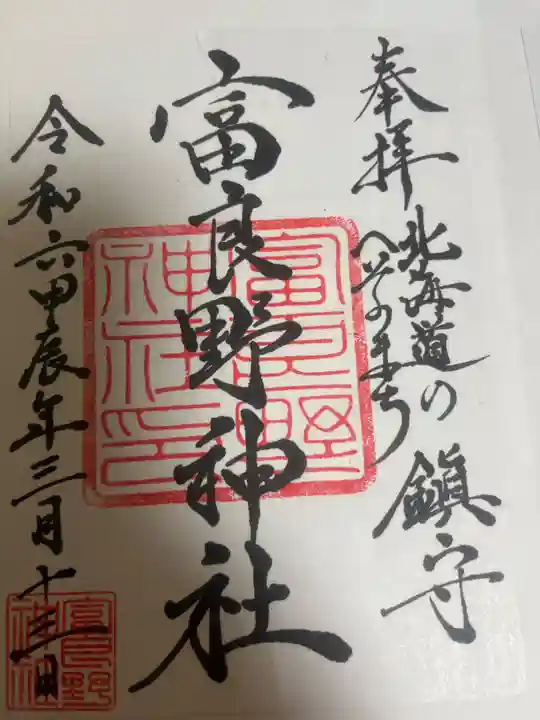 奉拝
北海道の
へそのまち
鎮守
富良野神社
富良野神社印
令和六甲辰年三月十三日
富良野神社